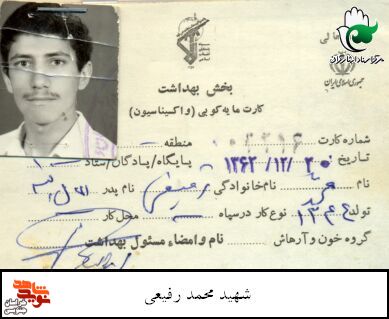 مرکز اسناد ایثارگران
جمهوری اسلامی ایران
بخش بهداشت
کارت مایه کوبی (واکسیناسیون)
شماره کارت
منطقه
تاریخ ۱۳۶۲/۱۲/۲۰ پایگاه/پادگان/ستاد
نام محمد نام خانوادگی رفیعی نام پدر
تولد نوع کار در سپاه محل کار
گروه خون و آرهاش نام و امضاء مسئول بهداشت
شهید محمد رفیعی
نوید شاهد
خراسان جنوبی